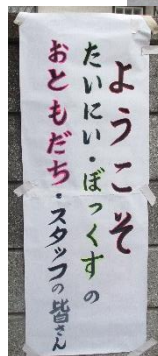 ようこそ
たいにい・ぼっくすの
おともだち・スタッフの皆さん